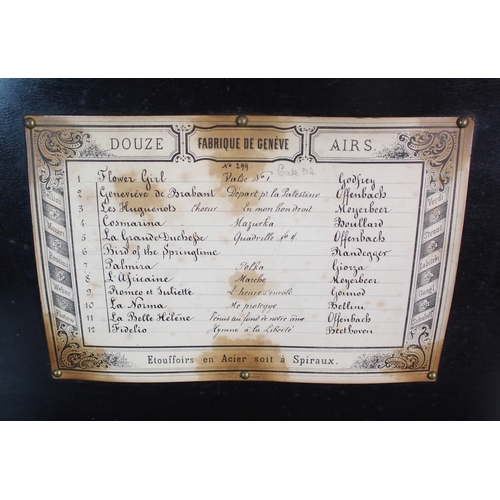 DOUZE FABRIQUE DE GENÈVE AIRS.
No 299
1 Flower Girl Valse No 1 Godfrey
2 Geneviève de Brabant Départ p. la Palestine Offenbach
3 Les Huguenots Choeur En mon bon droit Meyerbeer
4 Cosmarina Mazurka Bouillard
5 La Grande Duchesse Quadrille No 4 Offenbach
6 Bird of the Springtime Randegger
7 Palmira Polka Giorza
8 L'Africaine Marche Meyerbeer
9 Romeo et Juliette L'heure s'envole Gounod
10 La Norma Me protege Bellini
11 La Belle Hélène Vénus au fond de notre âme Offenbach
12 Fidelio Hymne à la Liberté Beethoven
Etouffoirs en Acier soit à Spiraux.
Mozart
Rossini
Weber
Verdi
Strauss